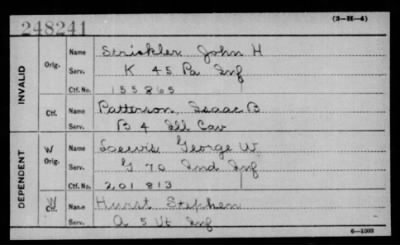 248241
(3-H-4)
INVALID
Orig.
Name Strickler John H
Serv. K 45 Pa Inf
Ctf. No. 155865
Ctf.
Name Patterson, Isaac B
Serv. B 4 Ill Cav
DEPENDENT
W
Orig.
Name George W.
Serv. G 70 Ind Inf
Ctf. No. 201813
W
Ctf.
Name Hurst Stephen
Serv. A 5 Vt Inf
6-1003